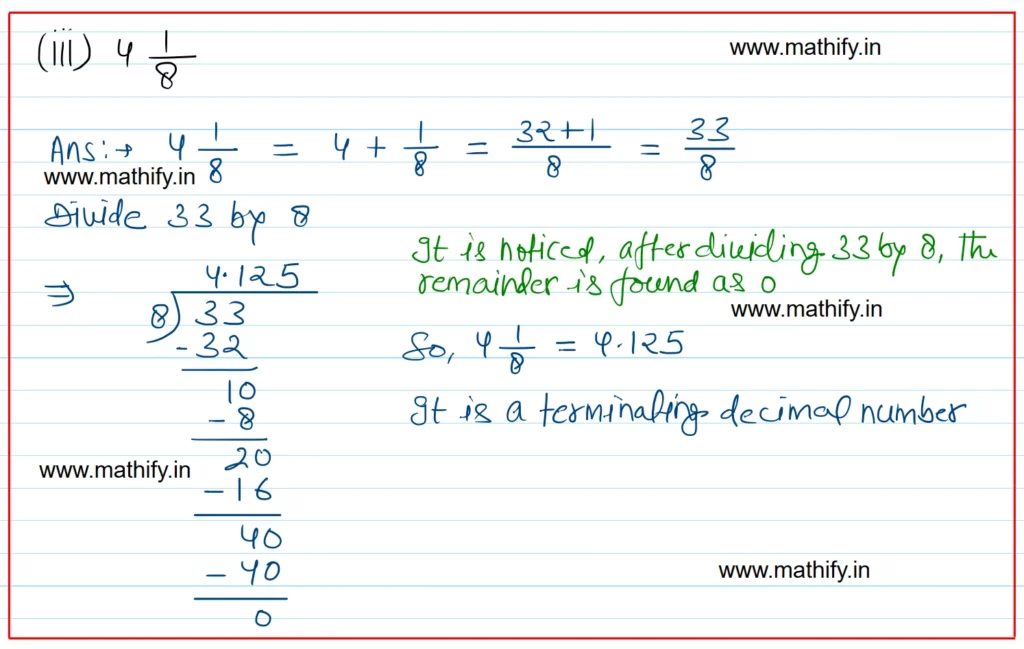 (iii) 4 1/8
www.mathify.in
Ans:→ 4 1/8 = 4 + 1/8 = 32+1/8 = 33/8
www.mathify.in
Divide 33 by 8
⇒
4.125
8)33
-32
10
-8
20
www.mathify.in
-16
40
-40
0
It is noticed, after dividing 33 by 8, the
remainder is found as 0
www.mathify.in
So, 4 1/8 = 4.125
It is a terminating decimal number
www.mathify.in